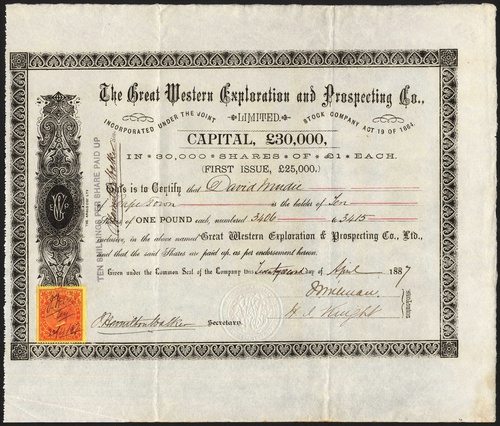 The Great Western Exploration and Prospecting Co.,
LIMITED.
INCORPORATED UNDER THE JOINT STOCK COMPANY ACT 19 OF 1864.
CAPITAL, £30,000,
IN 30,000 SHARES OF £1 EACH.
(FIRST ISSUE, £25,000.)
This is to Certify that David Mudie
Cape Town is the holder of Ten
of ONE POUND each, numbered 3406 to 3415
inclusive, in the above named Great Western Exploration & Prospecting Co., Ltd.,
and that the said Shares are paid up, as per endorsement hereon.
Given under the Common Seal of the Company this Twenty second day of April 1887
P. Hamilton Walker Secretary.
H. A. Knight
TEN SHILLINGS PER SHARE PAID UP